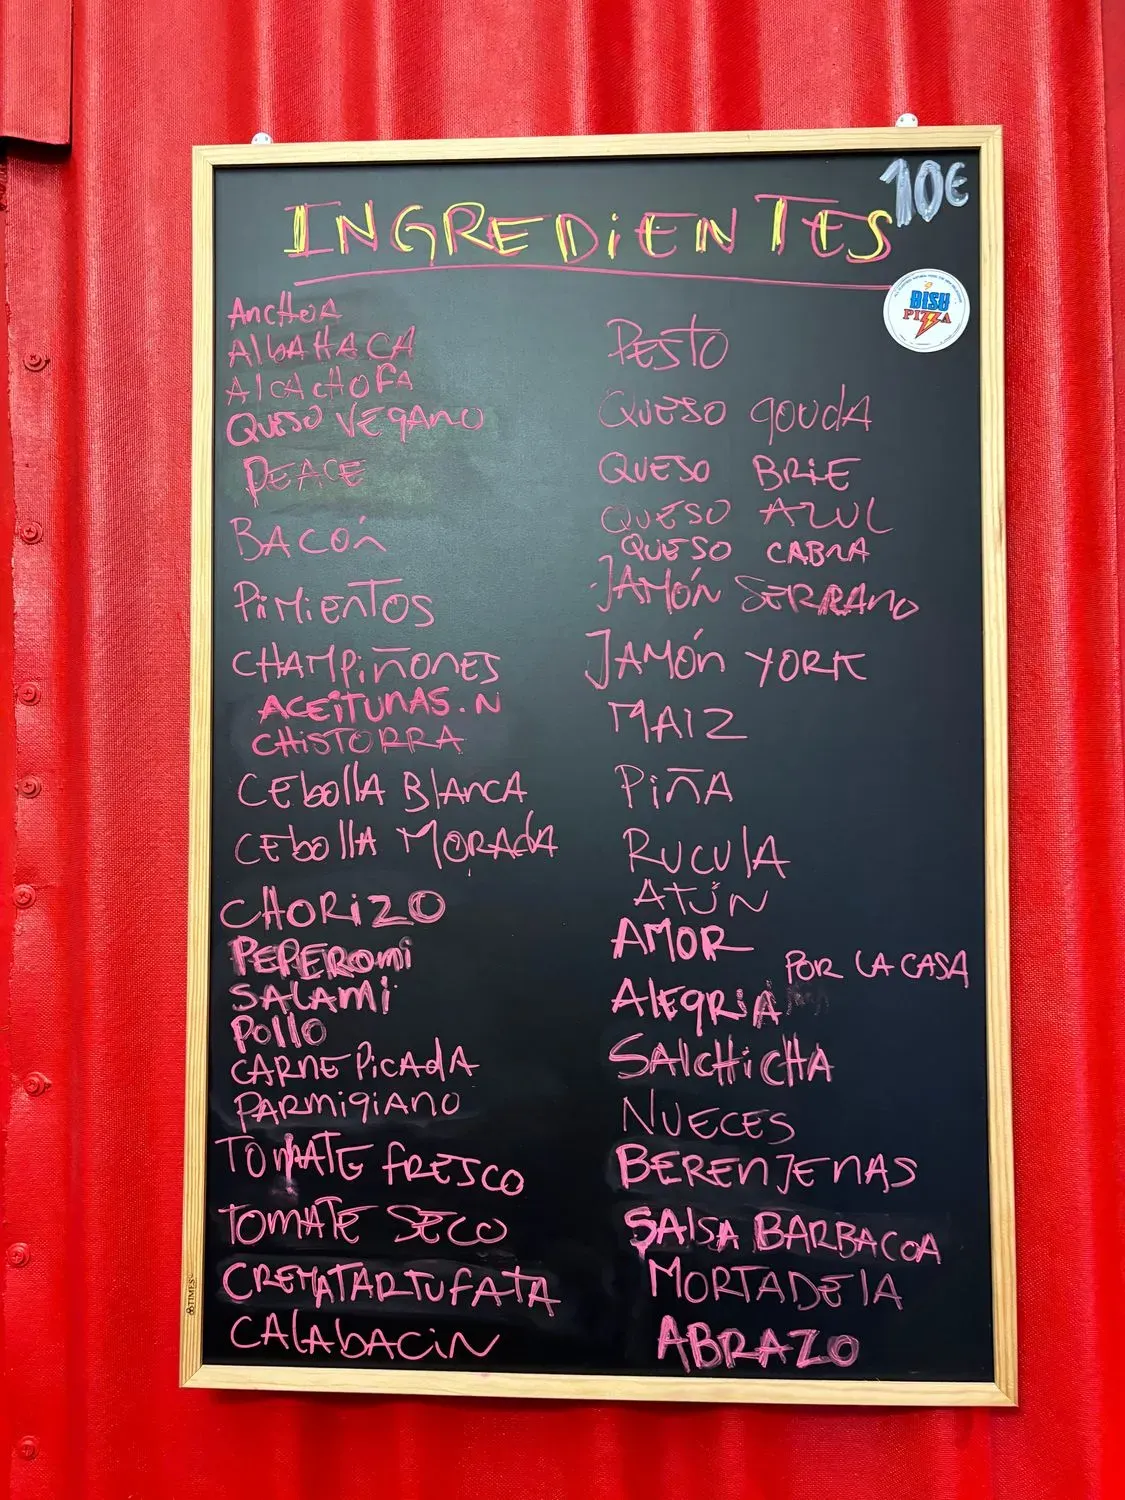 10€
INGREDIENTES
BISU
PIZZA
ANCHOA
AlbAHACA
AlCACHOFA
QUESO VEGANO
PEACE
BACÓN
PIMIENTOS
CHAMPIÑONES
ACEITUNAS.N
CHISTORRA
CEbollA BlANCA
CEbollA MORAdA
CHORIZO
PEPEROmi
SALAMI
POLLO
CARNE PICAdA
PARMIgIANO
TOMATE FRESCO
TOMATE SECO
CREMATARTUFATA
CALAbACIN
PESTO
QUESO gOUdA
QUESO BRIE
QUESO AZUL
QUESO CABRA
JAMÓN SERRANO
JAMÓN YORK
MAIZ
PIÑA
RUCULA
ATÚN
AMOR
POR LA CASA
AlEgRIA
SAlCHICHA
NUECES
BERENJENAS
SAlSA BARBACOA
MORTADElA
ABRAZO
TIMES